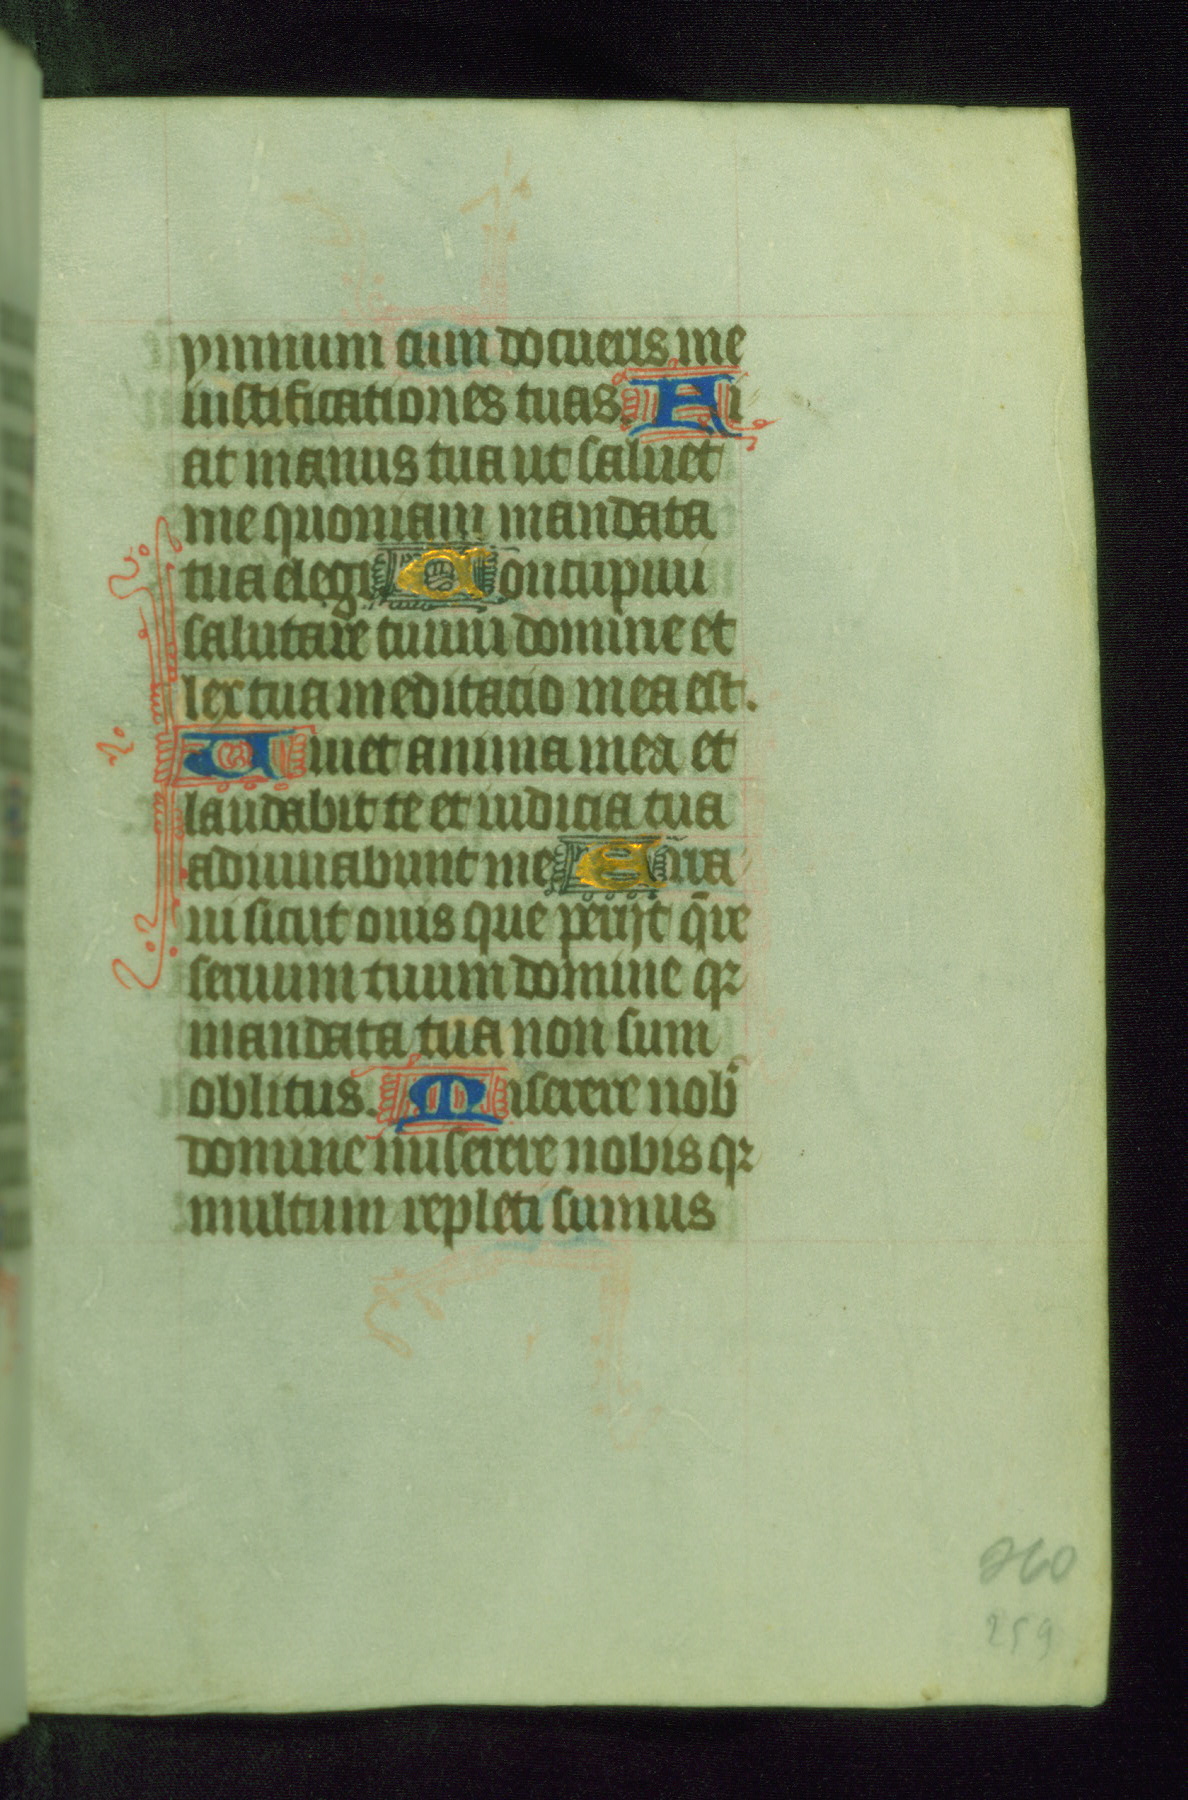 ymnum cum docueris me
iustificationes tuas Fi
at manus tua ut saluet
me quoniam mandata
tua elegi Concupiui
salutare tuum domine et
lex tua meditatio mea est.
Uiuet anima mea et
laudabit te et iudicia tua
adiuuabunt me Erra
ui sicut ouis que perijt q̄re
seruum tuum domine qꝛ
mandata tua non sum
oblitus. Miserere nob̄
domine miserere nobis qꝛ
multum repleti sumus
260
259